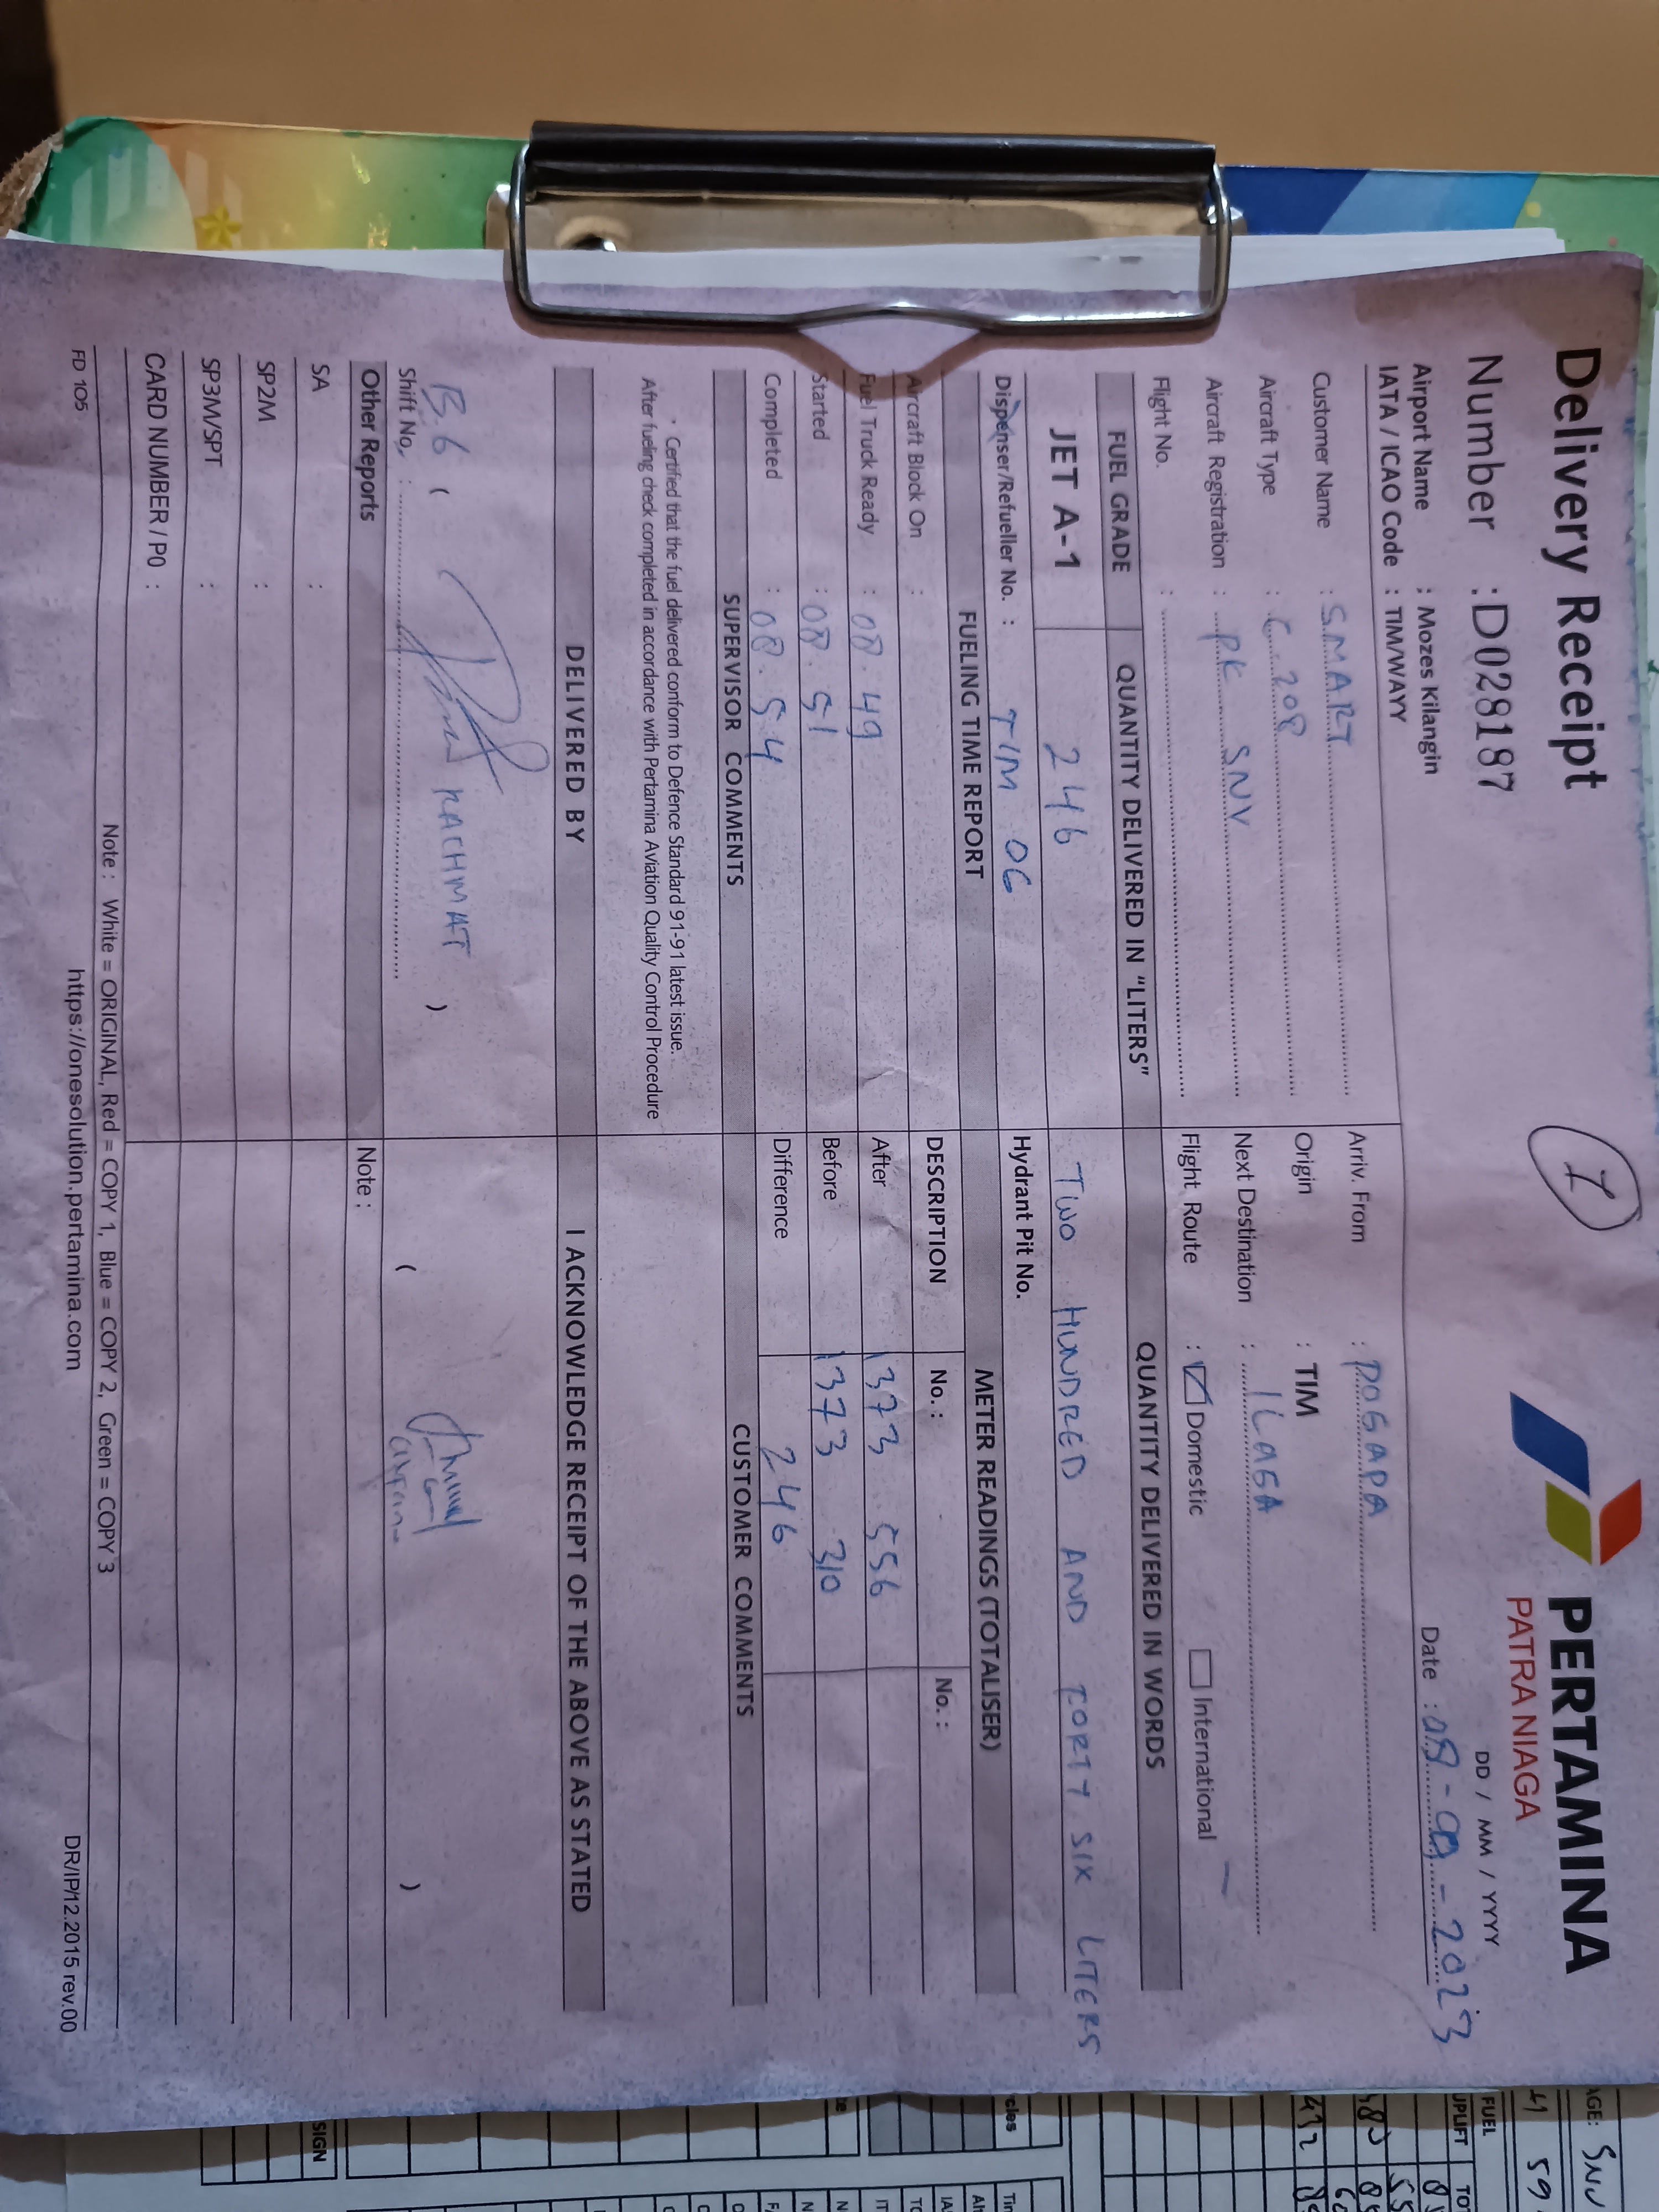 Delivery Receipt
1
PERTAMINA
PATRA NIAGA
Number : D028187
DD / MM / YYYY
Airport Name : Mozes Kilangin
Date : 08-09-2023
IATA / ICAO Code : TIM/WAYY
Customer Name : SMART
Arriv. From : DOGAPA
Aircraft Type : C 208
Origin : TIM
Aircraft Registration : PK SNV
Next Destination : ILAGA
Flight No. :
Flight Route : Domestic International
FUEL GRADE QUANTITY DELIVERED IN "LITERS" QUANTITY DELIVERED IN WORDS
JET A-1 246 TWO HUNDRED AND FORTY SIX LITERS
Dispenser/Refueller No. : TIM 06 Hydrant Pit No.
FUELING TIME REPORT METER READINGS (TOTALISER)
Aircraft Block On : DESCRIPTION No. : No. :
Fuel Truck Ready : 08.49 After 1373 556
Started : 08.51 Before 1373 310
Completed : 08.54 Difference 246
SUPERVISOR COMMENTS CUSTOMER COMMENTS
* Certified that the fuel delivered conform to Defence Standard 91-91 latest issue.
After fueling check completed in accordance with Pertamina Aviation Quality Control Procedure
DELIVERED BY I ACKNOWLEDGE RECEIPT OF THE ABOVE AS STATED
B.6 ( RACHMAT ) ( )
Shift No. :
Other Reports Note :
SA :
SP2M :
SP3M/SPT :
CARD NUMBER / PO :
Note : White = ORIGINAL, Red = COPY 1, Blue = COPY 2, Green = COPY 3
FD 105 https://onesolution.pertamina.com DR/IP/12.2015 rev.00
FUEL
UPLIFT
SIGN